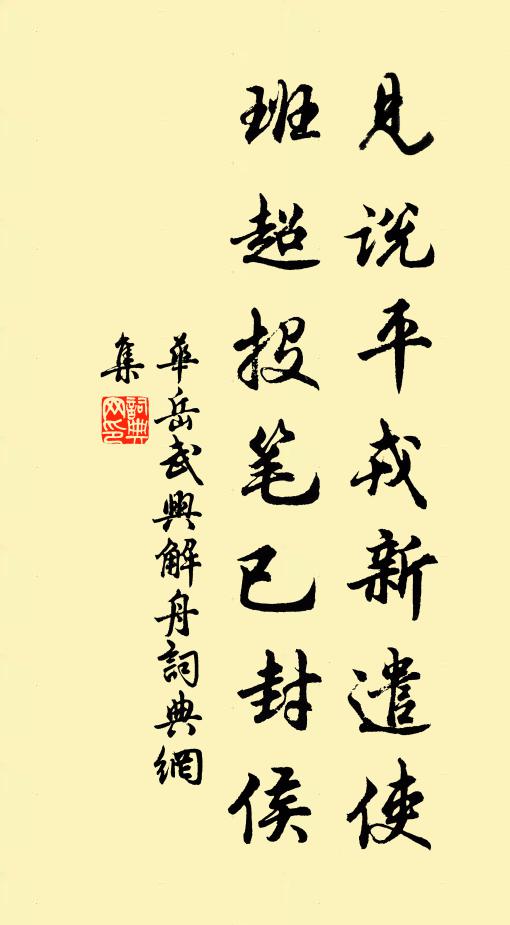 见说平戎新遣使
班超投笔已封侯
華岳武興解舟詞典網
集
詞典
网印